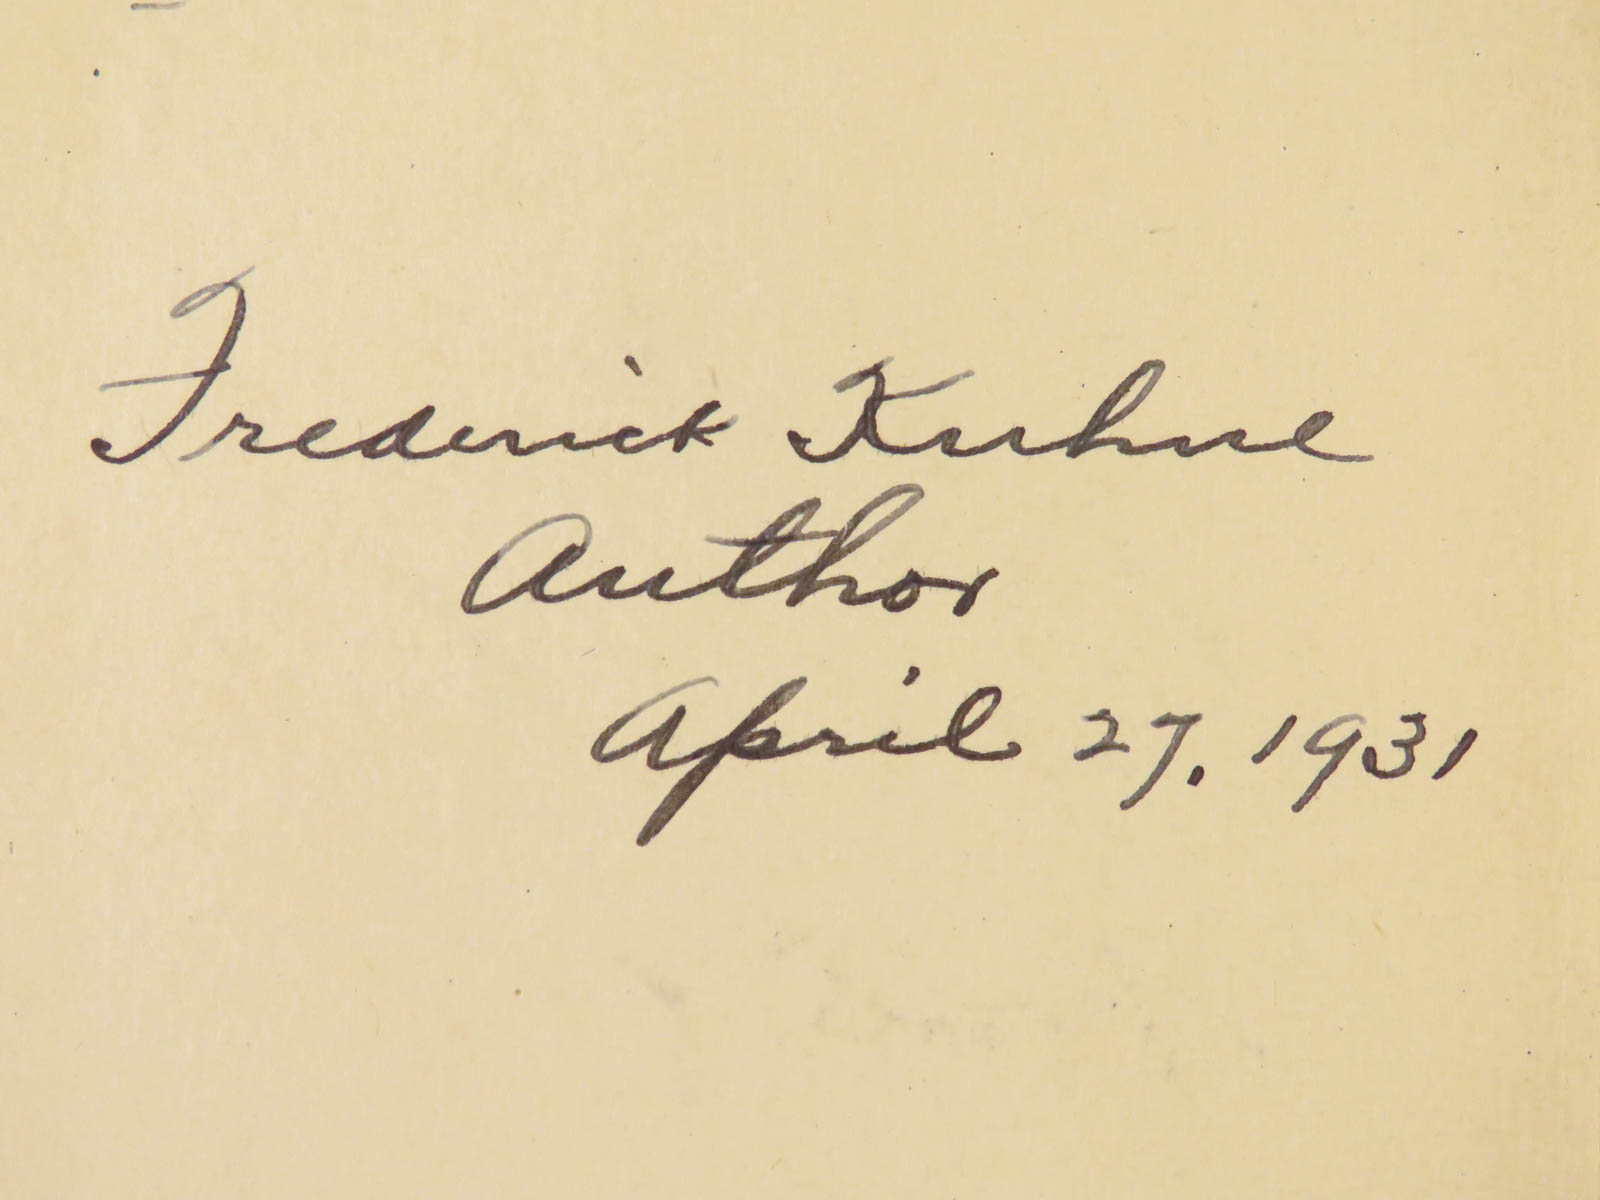 Frederick Kuhne
Author
April 27, 1931